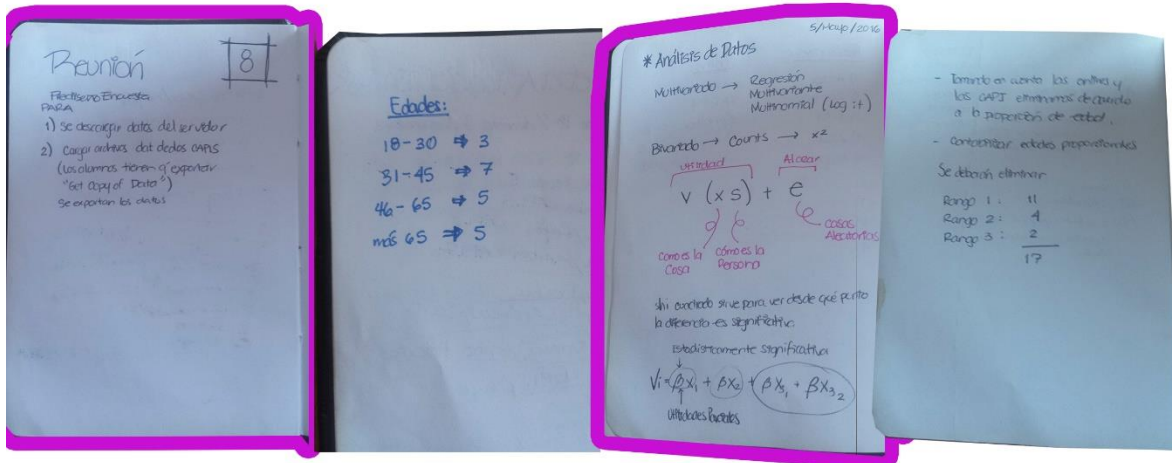 Reunión
8
PARA
1) Se descargar datos del servidor
2) Cargar archivos dat de los CAPIS
(Los alumnos tienen q' exportar
"Get Copy of Data")
Se exportan los datos
Edades:
18-30 ⇒ 3
31-45 ⇒ 7
46-65 ⇒ 5
más 65 ⇒ 5
5/Mayo/2016
* Análisis de Datos
Multivariado → Regresión
Multivariante
Multinomial (Logit)
Bivariado → Counts → x²
utilidad
Al azar
v (x s) + e
cosas
Aleatorias
como es la
Cosa
cómo es la
Persona
cuadrado sirve para ver desde qué punto
la diferencia es significativa
Estadísticamente significativa
Vi = βx₁ + βx₂ + βx₃₁ + βx₃₂
utilidades Parciales
- Tomando en cuenta las online y
los CAPI eliminamos de acuerdo
a la proporción de edad.
- edades proporcionales
Se deberán eliminar
Rango 1: 11
Rango 2: 4
Rango 3: 2
17